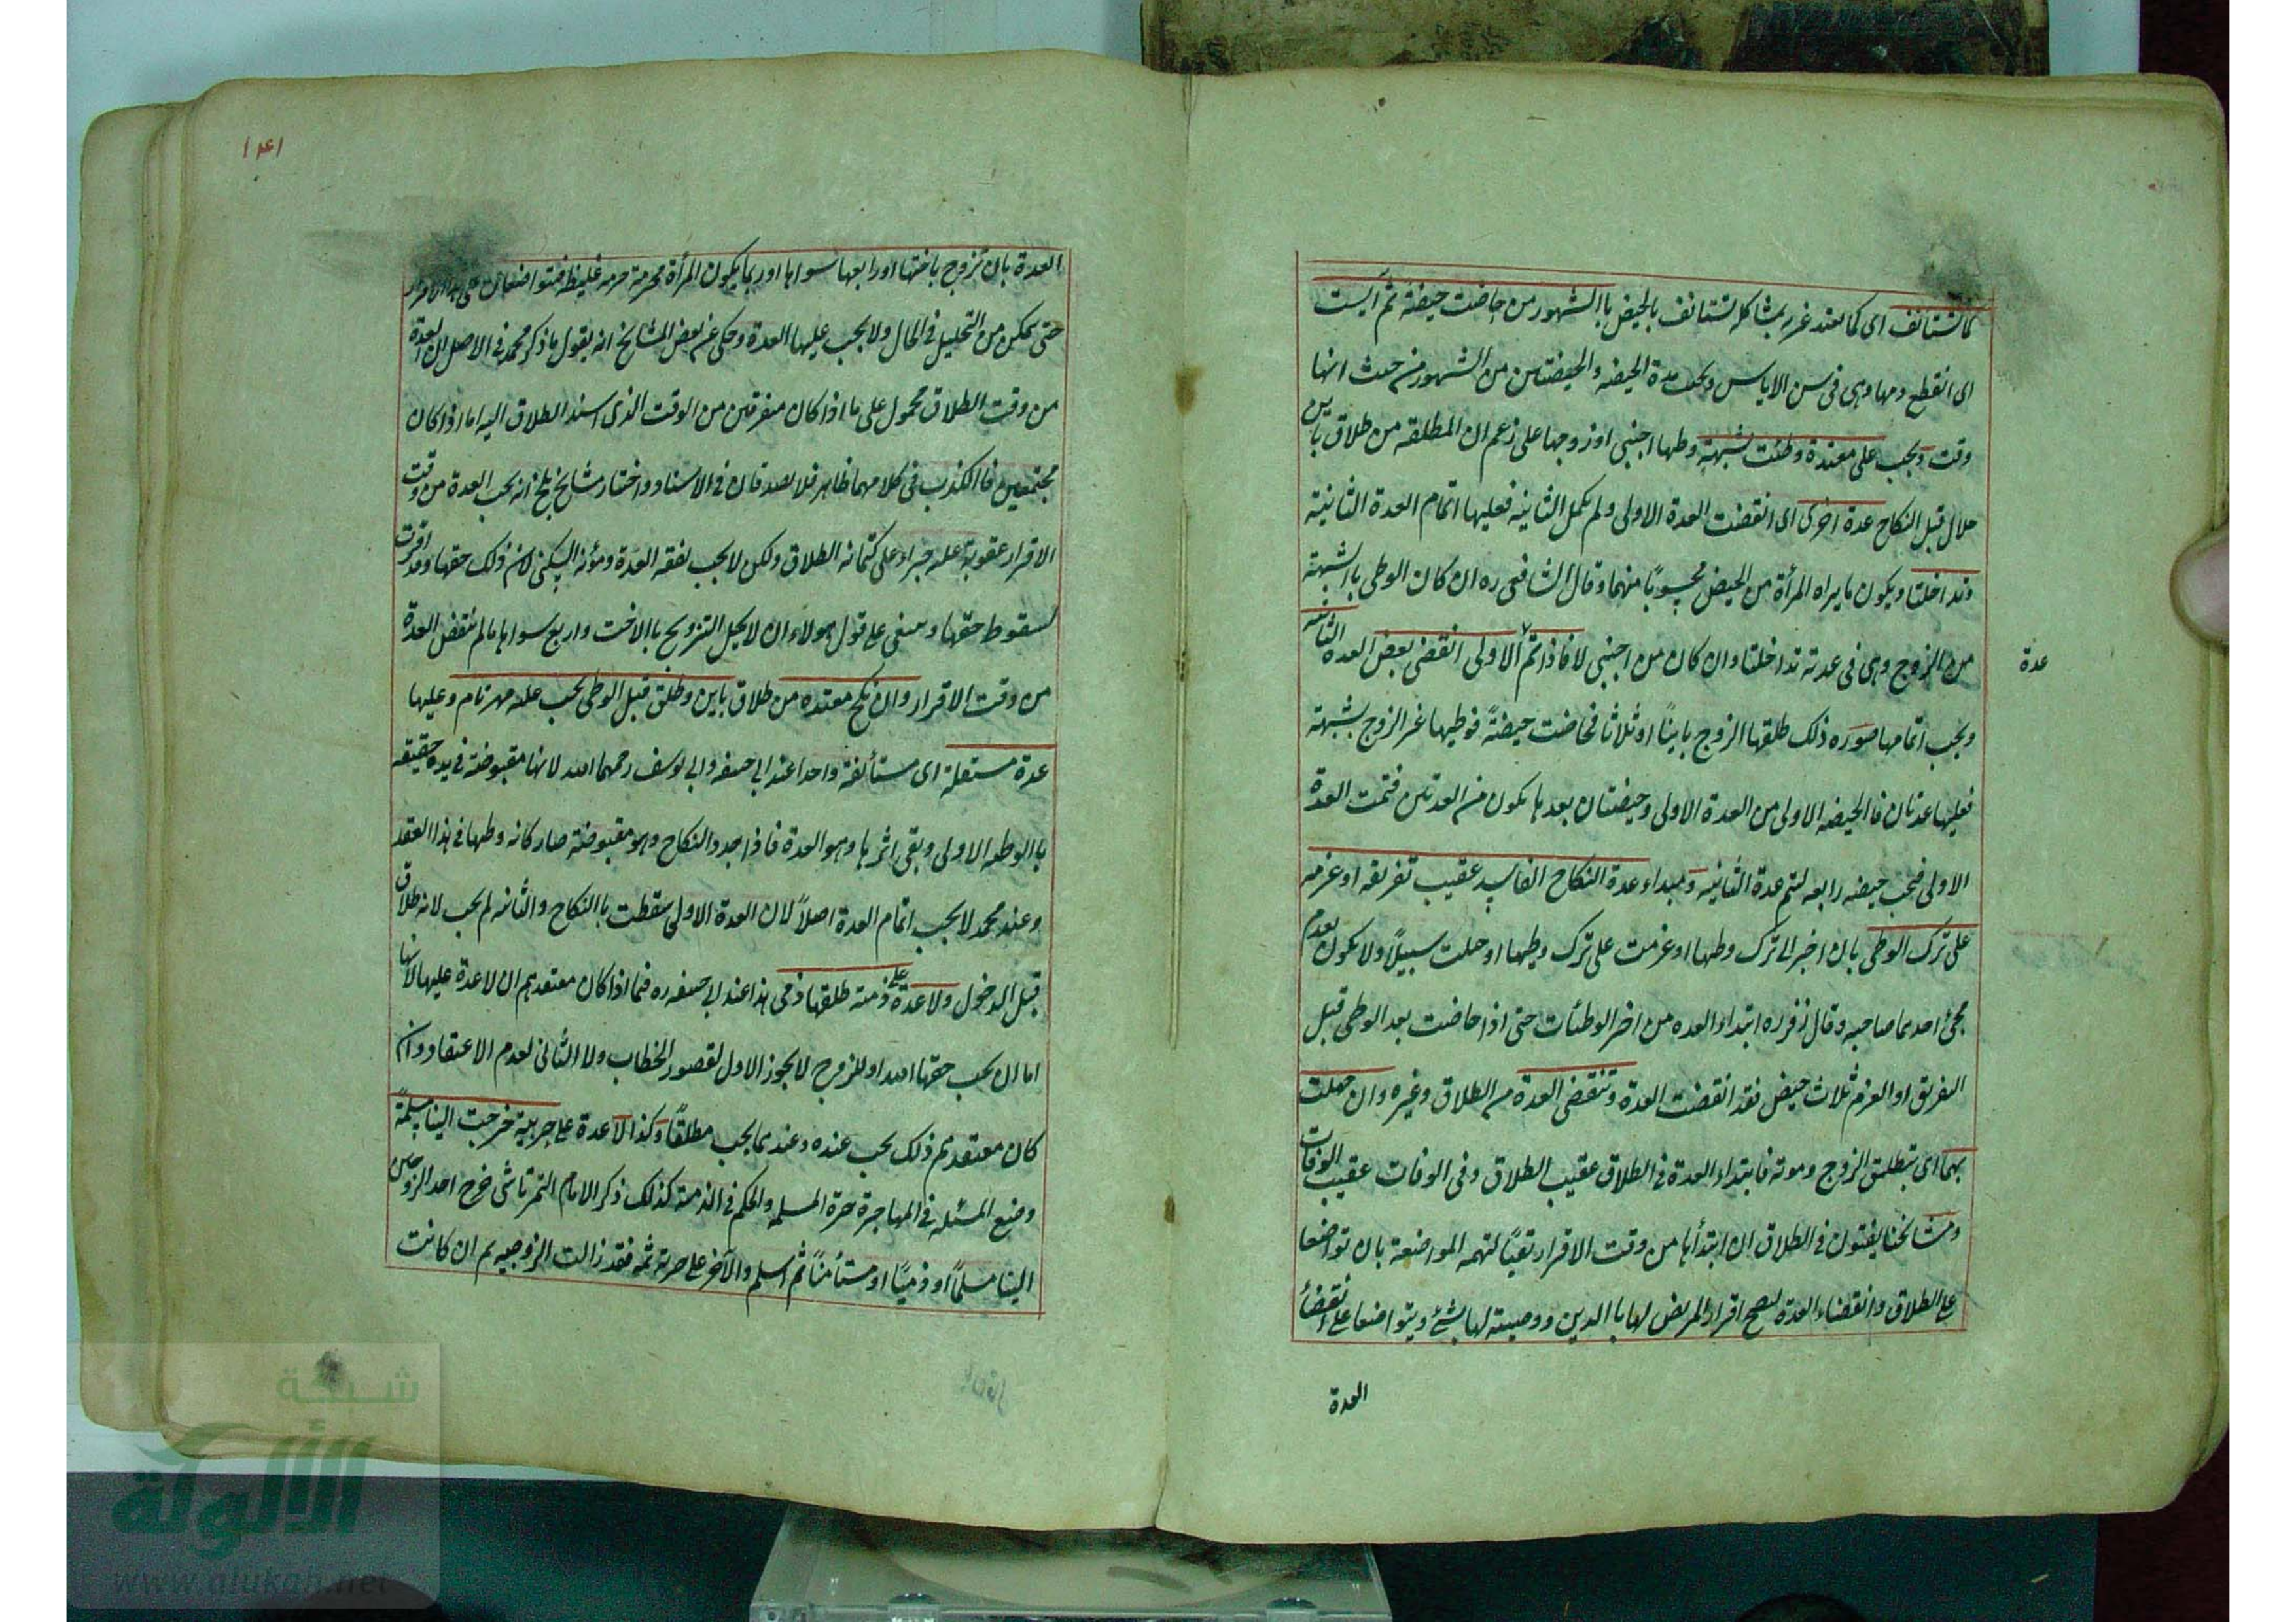 كما تستانف اى كما تعتد غيره بمشاكلة تستانف بالحيض باالشهور من حاضت حيضة ثم آيست
اى انقطع دمها وهى فى سن الاياس ويجب مدة الحيضه والحيضتان من الشهور من حيث انها
وقت ويجب على معتدة وطئت بشبهة وطها اجنبى او زوجها على زعم ان المطلقه من طلاق باين
حلال قبل النكاح عدة اخرى اى انقضت العدة الاولى ولم تكمل الثانيه فعليها اتمام العدة الثانية
وتداخلتا ويكون ما يراه المرأة من الحيض محسوبًا منهما وقال الشافعى ره ان كان الوطى باالشبهة
من الزوج وهى فى عدته تداخلتا وان كان من اجنبى لا فاذا تم الاولى انقضى بعض العده الثانيه
عدة
ويجب اتمامها صوره ذلك طلقها الزوج باينًا او ثلاثا فحاضت حيضةً فوطيها غير الزوج بشبهة
فعليها عدتان فالحيضه الاولى من العدة الاولى وحيضتان بعدها تكون من العدتين فتمت العدة
الاولى فيجب حيضه رابعه لتتم عدة الثانيه ومبداء عدة النكاح الفاسد عقيب تفريقه او عزمه
على ترك الوطى بان اخبر الى ترك وطها او عزمت على ترك وطيها او خليت سبيلًا ولا يكون بعدم
مجئ احدهما صاحبه وقال زفر ره ابتداء العده من اخر الوطئات حتى اذا حاضت بعد الوطى قبل
التفريق او العزم ثلاث حيض فقد انقضت العدة وتنقضى العدة من الطلاق وغيره وان جهلت
بهما اى بتطليق الزوج وموته فابتداء العدة فى الطلاق عقيب الطلاق وفى الوفات عقيب الوفات
ومشائخنا يفتون فى الطلاق ان ابتدأها من وقت الاقرار نفيًا لتهمه المواضعة بان تواضعا
على الطلاق وانقضاء العدة ليصح اقرار المريض لها باالدين ووصيته لها بشئ ويتواضعا على انقضاء
العدة
١٤١
العدة بان تزوج باختها او رابعها سواها او ربما يكون المرأة محرمة حرمه غليظه فتواضعان على
حتى يتمكن من التحليل فى الحال ولا يجب عليها العدة وحكى عن بعض المشايخ انه يقول ما ذكر محمد فى الاصل ان العدة
من وقت الطلاق محمول على ما اذا كان متفرقين من الوقت الذى اسند الطلاق اليه اما اذا كان
مجتمعين فاالكذب فى كلامهما ظاهر فلا يصدقان فى الاسناد واختار مشايخ بلخ انه يجب العدة من وقت
الاقرار عقوبة عليه جزاء على كتمانه الطلاق ولكن لا يجب نفقه العدة ومؤنه السكنى لان ذلك حقها وقد اقرت
لسقوط حقها وينبغى على قول هولاء ان لا يحل التزويج باالاخت واربع سواها ما لم تنقض العدة
من وقت الاقرار وان نكح معتده من طلاق باين وطلق قبل الوطى يجب عليه مهر تام وعليها
عدة مستقلة اى مستأنفة واحدا عند ابى حنيفه وابى يوسف رحمهما الله لانها مقبوضة فى يده حقيقه
باالوطيه الاولى وبقى اثرها وهو العدة فاذا جدد النكاح وهو مقبوضة صار كانه وطها فى هذا العقد
وعند محمد لا يجب اتمام العدة اصلًا لان العدة الاولى سقطت باالنكاح والثانيه لم يجب لانه طلاق
قبل الدخول ولا عدة على ذميّة طلقها ذمى هذا عند ابى حنيفه ره فيما اذا كان معتقدهم ان لا عدة عليها لانها
اما ان يجب حقها لله او للزوج لا يجوز الاول لقصور الخطاب ولا الثانى لعدم الاعتقاد وان
كان معتقدهم ذلك يجب عنده وعندهما يجب مطلقًا وكذا لا عدة على حربية خرجت الينا مسلمةً
وضع المسئله فى المهاجرة حرة المسلمه والحكم فى الذمية كذلك ذكر الامام التمرتاشى خرج احد الزوجين
الينا مسلمًا او ذميًا او مستأمنًا ثم اسلم والآخر على حربه ثمه فقد زالت الزوجيه ثم ان كانت
شبكة
الألوكة
www.alukah.net